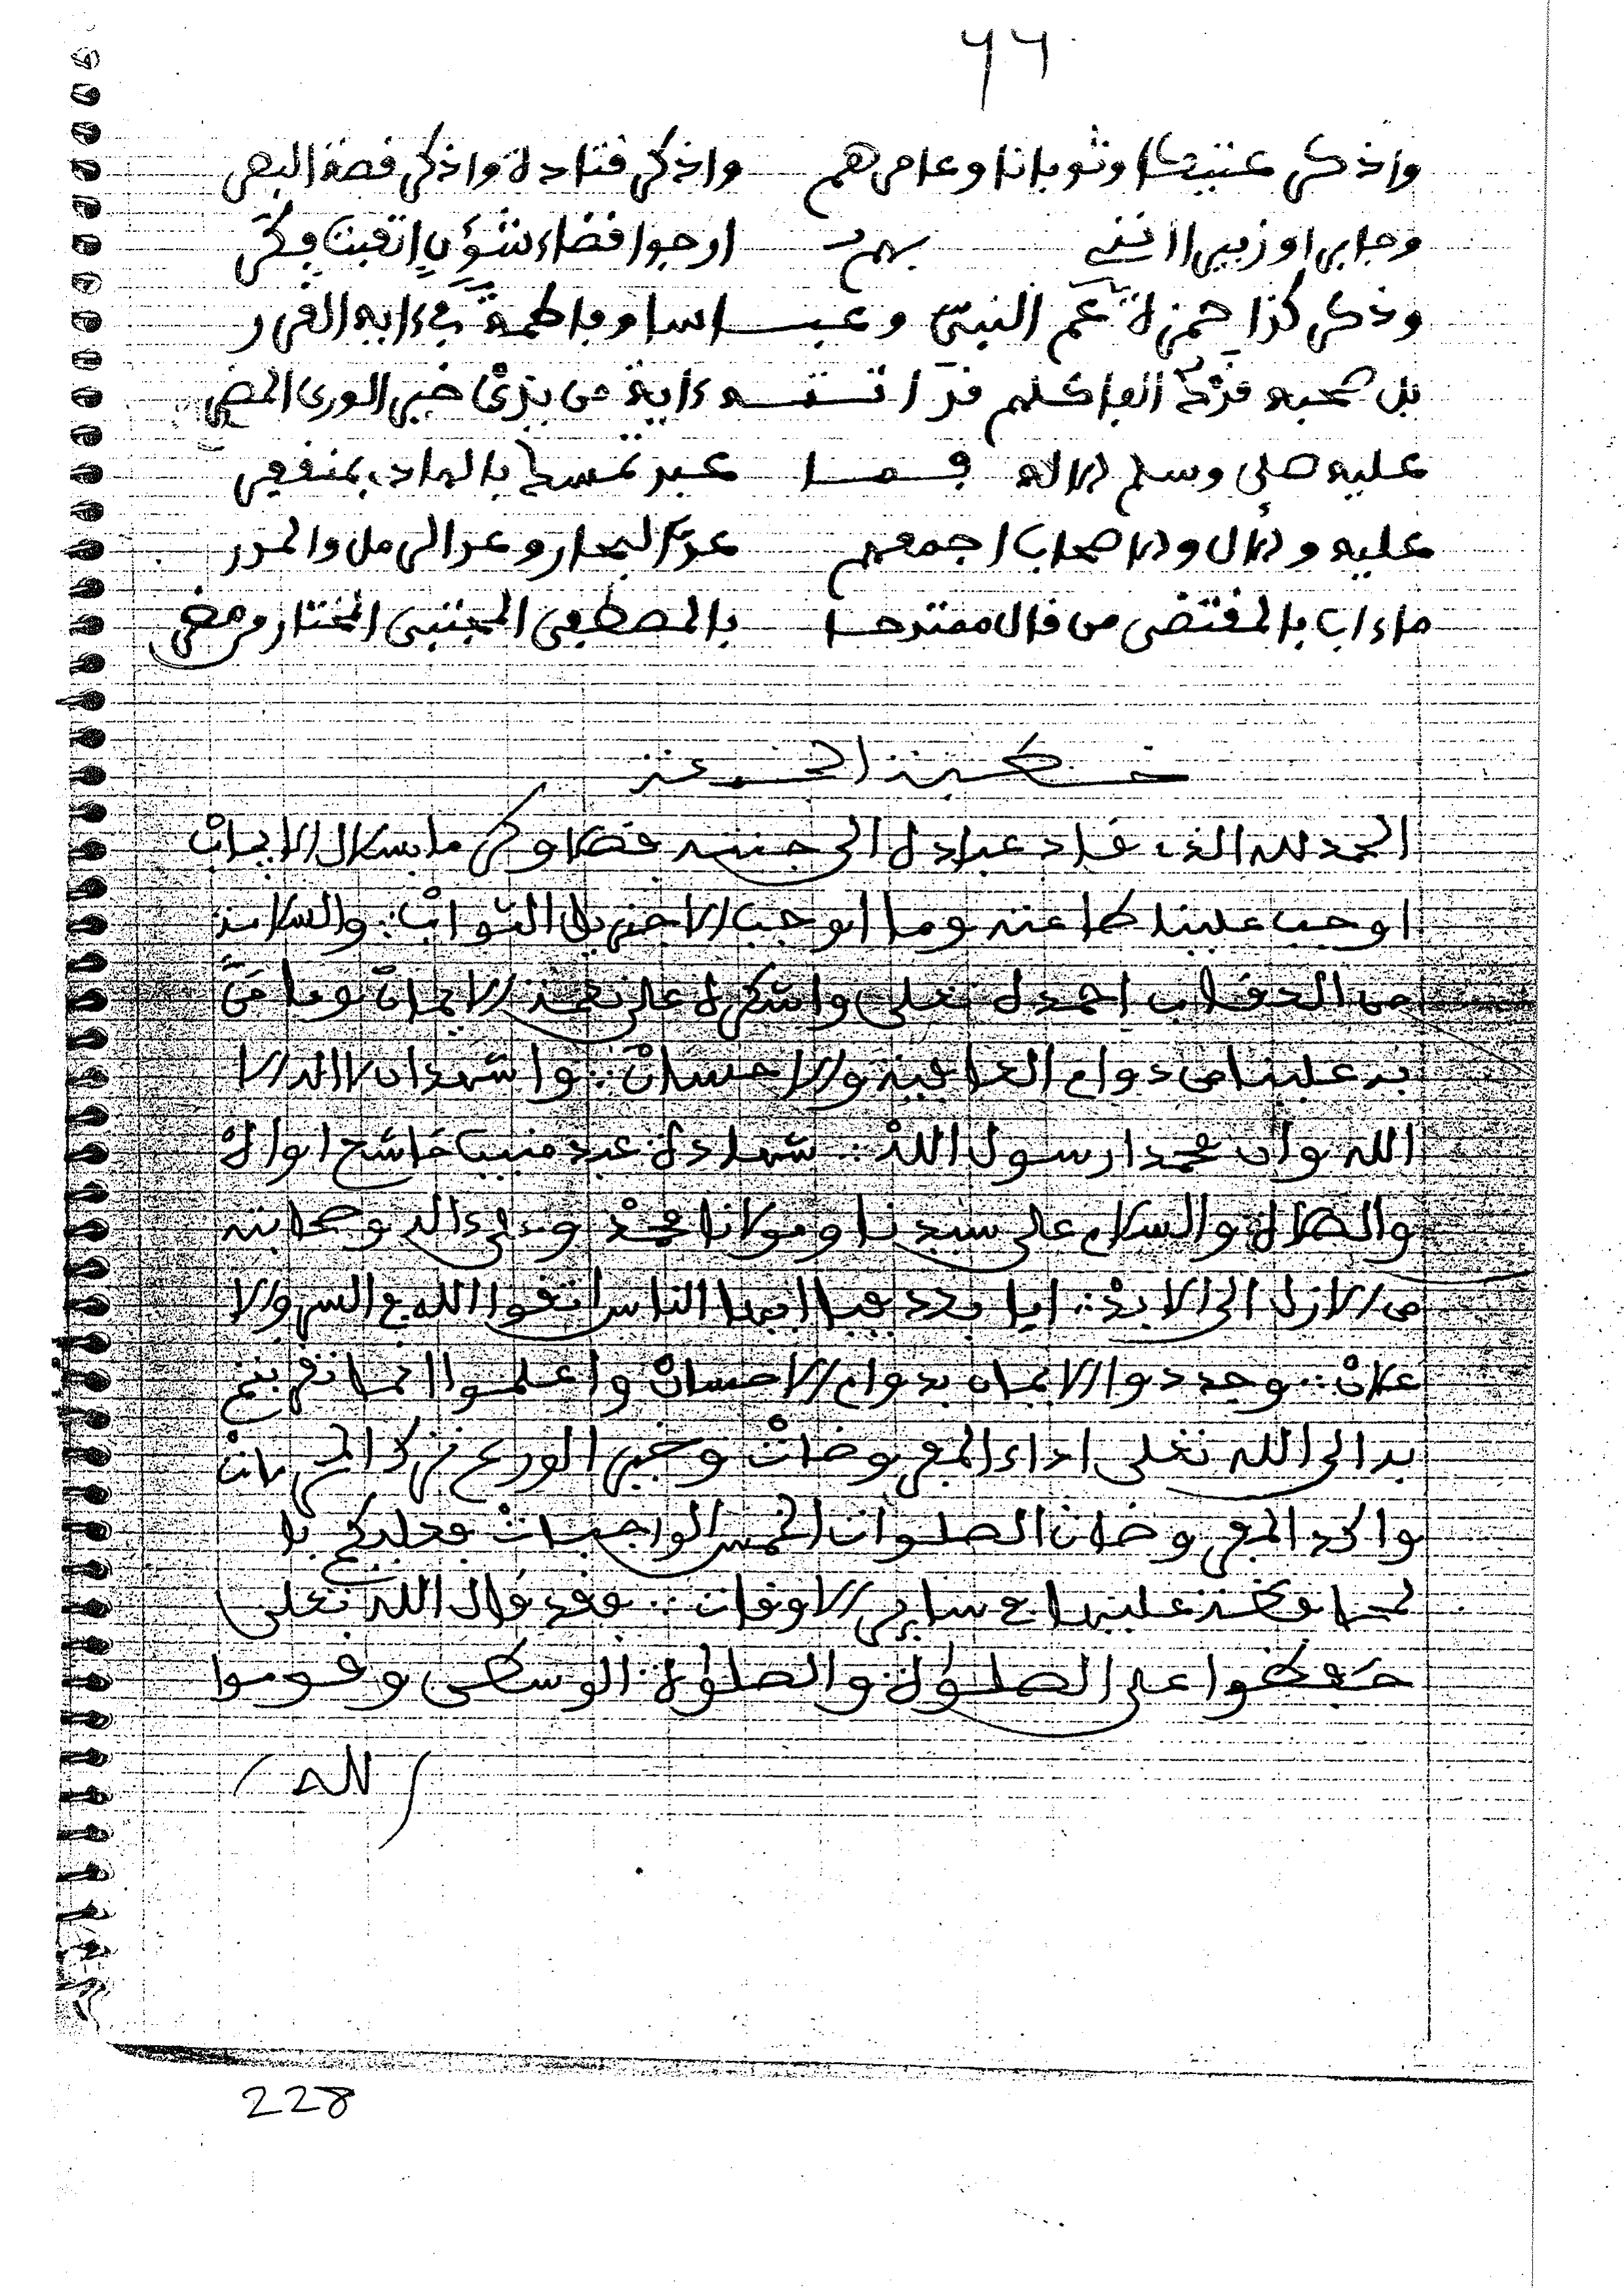 ٦٦
واذكر عتيكا وثوبانا وعامرهم واذكر قتادة واذكر قصة النفر
وجابر او زبيرا اننے بهم ارجوا قضاء شؤن اتقنت فكر
وذكر كذا حمزة عم النبي وعباسا وفاطمة في ءايه الغرر
بل صحبه قد الفا كلهم قد ءاية من بذي خير الورى المضر
عليه صلى وسلم الاله فما عبد تمسك بالهادي بمنفقر
عليه والآل والاصحاب اجمعهم عد البحار وعد الرمل والمدر
ما ءاب بالمقتضى من قال ممتدحا بالمصطفى المجتبى المختار من مضر
خطبة الجمعة
الحمد لله الذي قاد عباده الى جنته فضلا وكرما بسلال الايمان
اوجب علينا طاعته وما اوجب الا جزيل الثواب والسلامة
من العقاب احمده تعلى واشكره على نعمة الايمان وما من
به علينا من دوام العافية والاحسان واشهد ان لا اله الا
الله وان محمدا رسول الله شهادة عبد منيب خاشع اواه
والصلاة والسلام على سيدنا ومولانا محمد وعلى ءاله وصحابته
من الازل الى الابد اما بعد فيا ايها الناس اتقوا الله في السر والا
علان وجددوا الايمان بدوام الاحسان واعلموا انما تقربتم
به الى الله تعلى اداء المفروضات وخير الورع ترك المحرمات
واكد المفروضات الصلوات الخمس الواجبات فعليكم با
لمحافظة عليها في ساير الاوقات فقد قال الله تعلى
حفظوا على الصلوات والصلوة الوسطى وقوموا
لله
228